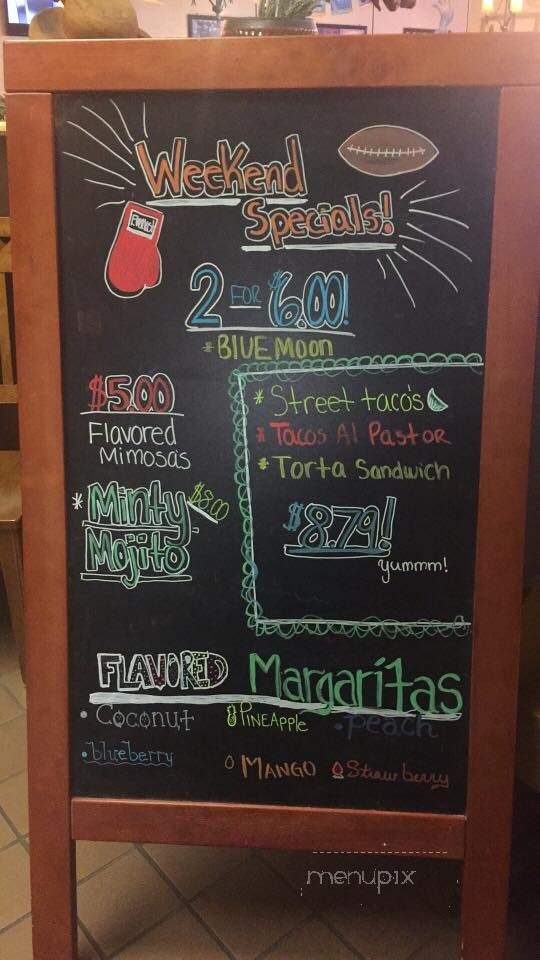 Weekend
Specials!
2 FOR $6.00!
*BlUE Moon
$5.00
Flavored
Mimosa's
* Minty $8.00
Mojito
* Street taco's
* Tacos Al Pastor
* Torta Sandwich
$8.79!
yummm!
FLAVORED Margaritas
• Coconut
PINEApple
• peach
• blueberry
MANGO
Strawberry
menupix